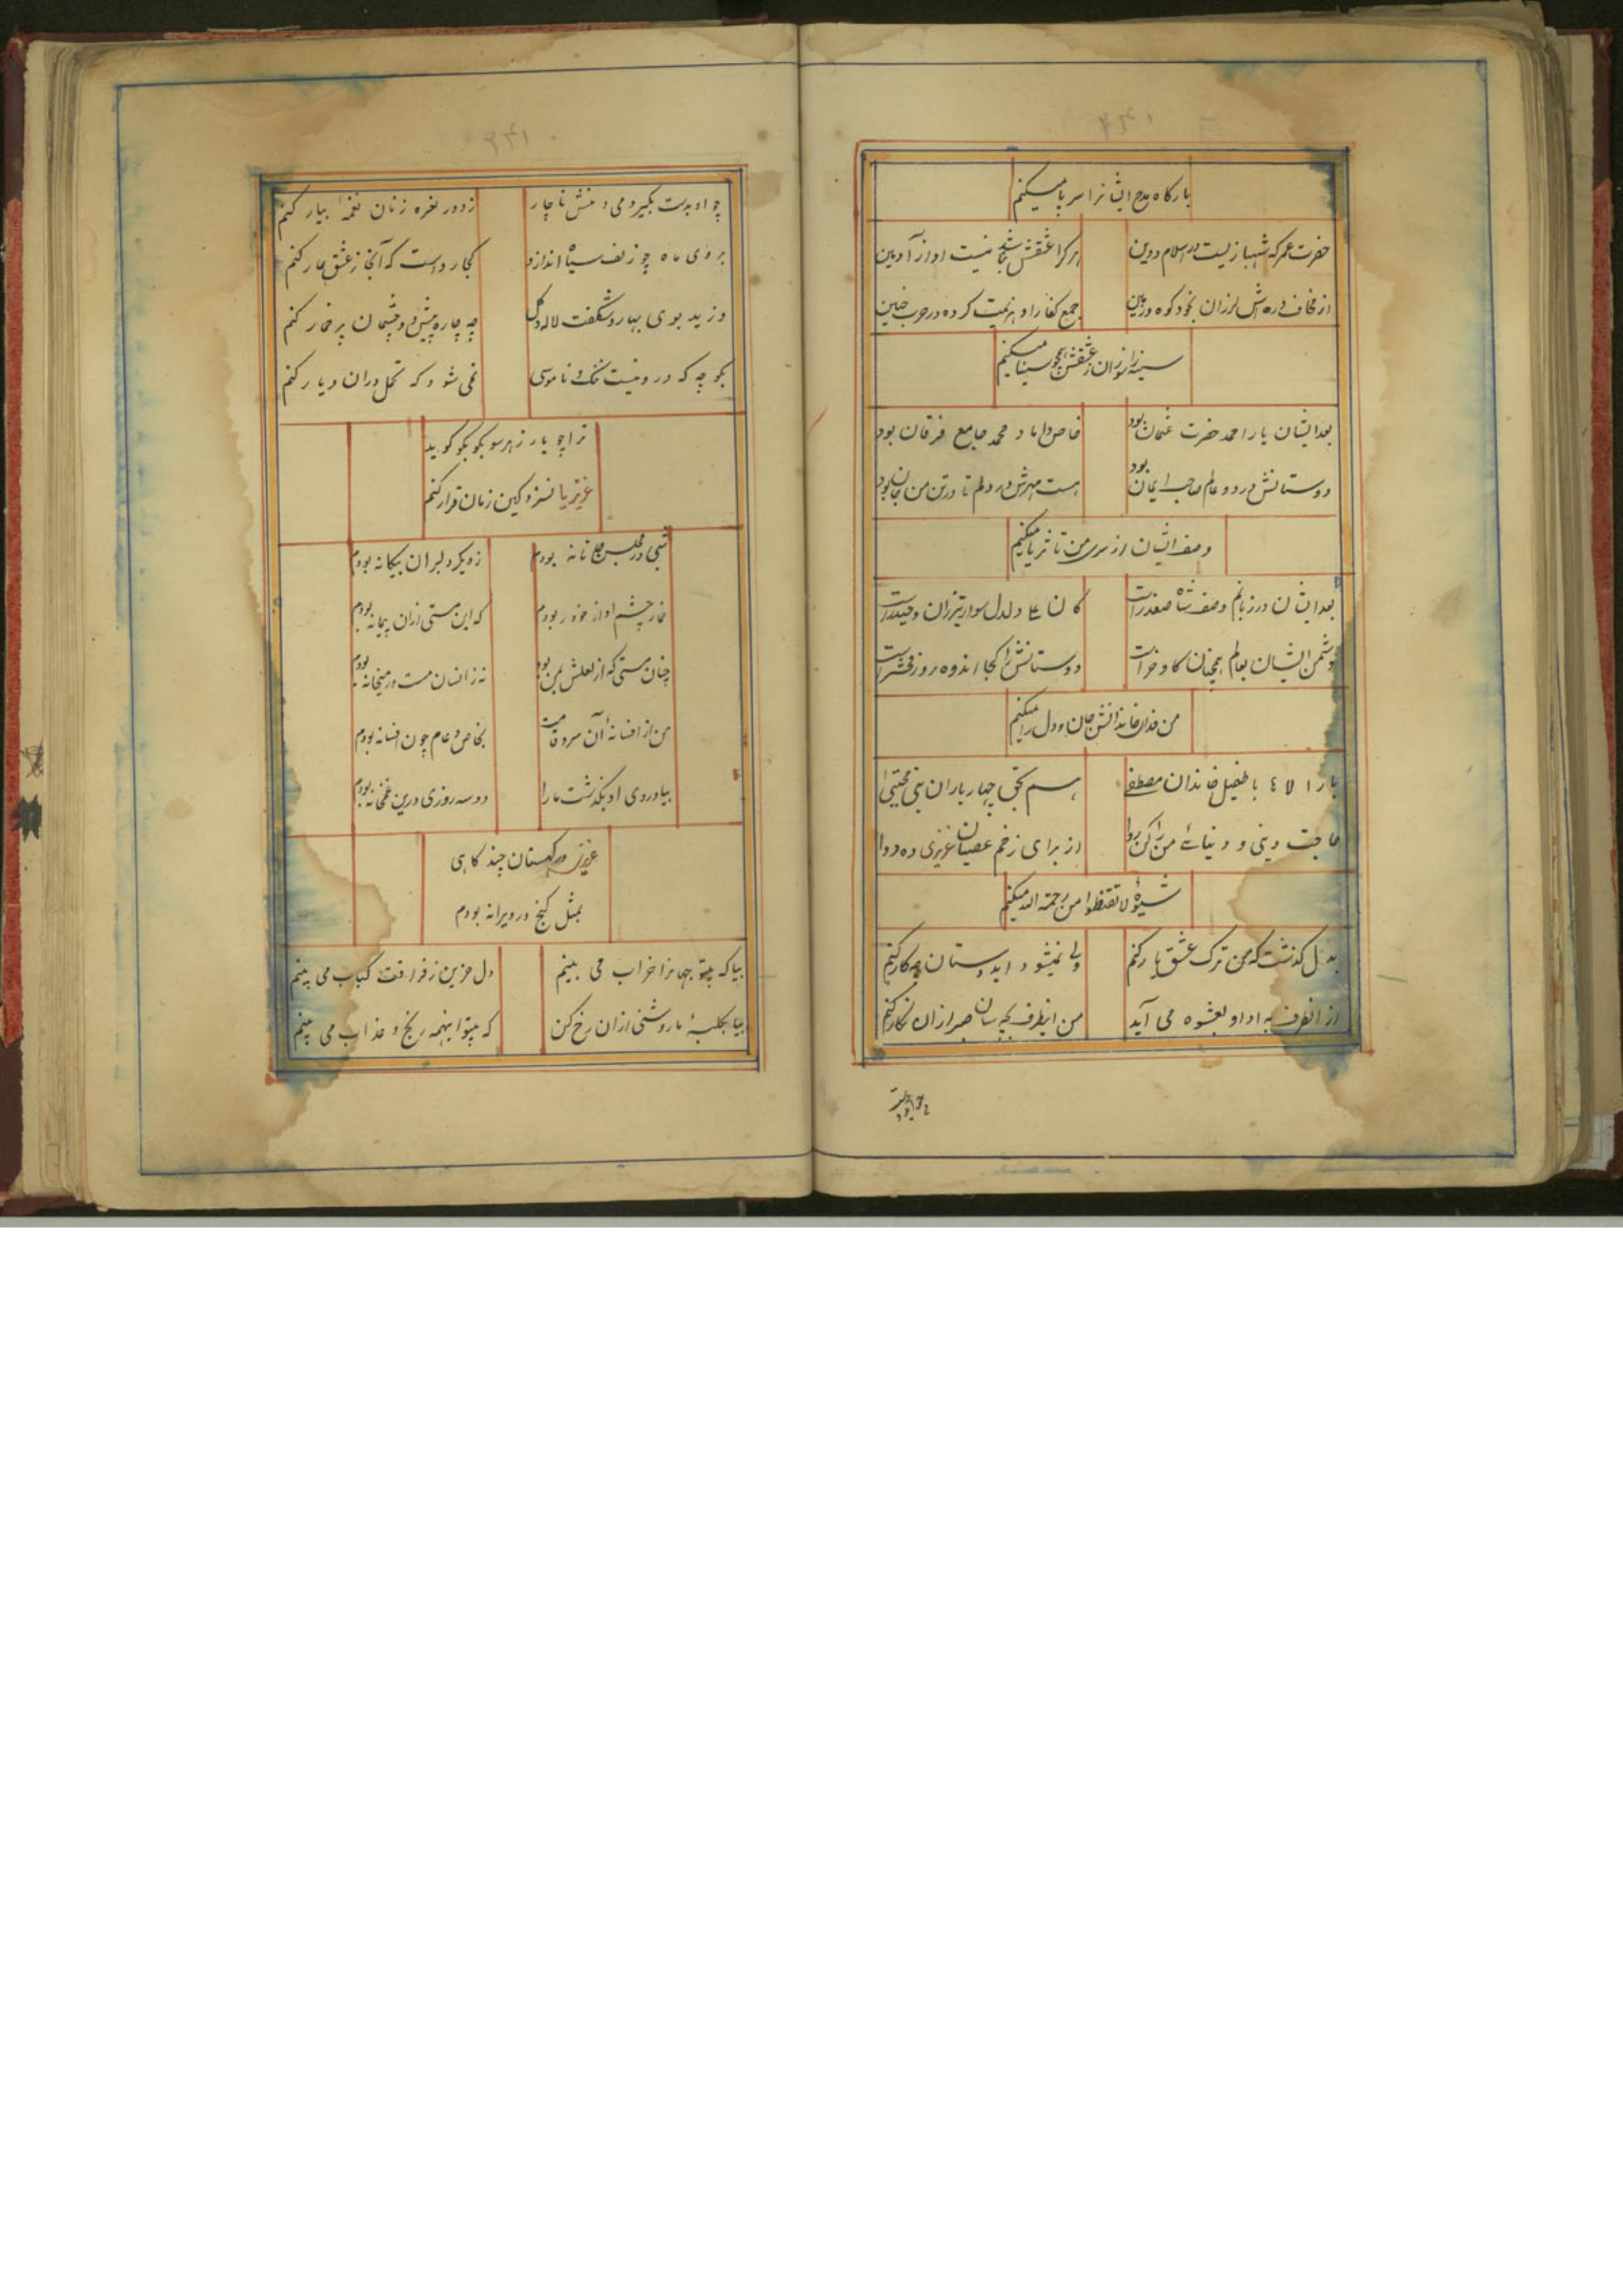 بارگاه مدح ایشانرا سر پا میکنم
حضرت عمر که شهبازیست در اسلام و دین
هرکرا عشقش نباشد نیست او از آدمین
از مخافت دره اش لرزان بخود کوه و زمین
جمع کفار او هزیمت کرده در حرب حنین
سینه را سوزان ز عشقش همچو سینا میکنم
بعد ایشان یار احمد حضرت عثمان بود
خاص داماد محمد جامع فرقان بود
دوستانش در دو عالم صاحب ایمان بود
هست مهرش در دلم تا در تن من جان بود
وصف ایشان از سری من تا ثریا میکنم
بعد ایشان در زبانم وصف شاه صفدر است
دلدل سوار تیزران و حیدر است
دشمن ایشان بعالم همچنان گاو خر است
دوستانش را کجا اندوه روز محشر است
من فدای خاندانش جان و دل را میکنم
با طفیل خاندان مصطفی
هم بحق چهار یاران نبی مجتبی
حاجت دینی و دنیائے من را کن روا
از برای زخم عصیان عزیزی ده دوا
شیوهٔ لا تقنطوا من رحمة الله میکنم
بدل گذشت که من ترک عشق یار کنم
ولی نمیشود ایدوستان چکار کنم
از انطرف به ادا و بعشوه می آید
من اینطرف بچه سان صبر ازان نگار کنم
چو او بدست
چو او بدست بگیرد می و منش ناچار
ز دور نعره زنان نغمهٔ بیار کنم
بروی ماه چو زلف سیاه اندازد
کجا رواست که آنجا ز عشق عار کنم
وزید بوی بهار و شگفت لاله و گل
چه چاره پیش دو چشمان پر خمار کنم
بکوچه که درو نیست ننگ و ناموسی
نمی شود که تحمل دران دیار کنم
ترا چو یار ز هر سو بکو بکو گوید
عزیزیا نسزد کین زمان قرار کنم
شبی در مجلس جانانه بودم
ز دیگر دلبران بیگانه بودم
خمار چشم او از خود ربودم
که این مستی ازان پیمانه بودم
چنان مستی که از لعلش بمن بود
نه زانسان مست در میخانه بودم
من از افسانهٔ آن سرو قامت
بخاص و عام چون افسانه بودم
بیا دردی او بگذشت ما را
دو سه روزی درین غمخانه بودم
عزیز کهستان چند گاهی
بمثل گنج در ویرانه بودم
بیا که بیتو جهانرا خراب می بینم
دل حزین ز فراقت کباب می بینم
بیا بکلبهٔ ما روشنی ازان رخ کن
که بیتو اینهمه رنج و عذاب می بینم